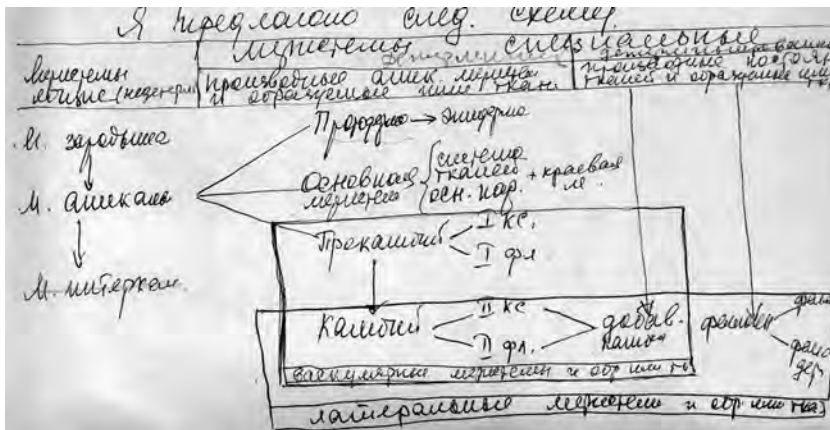 Я предлагаю след. схему.
меристемы специальные
Меристемы общие (недетерм
производные апик. меристем и образуемые ими ткани
производные постоян тканей и образуемые ими
М. зародыша
Протодерма → эпидерма
М. апикальн
Основная меристема { система тканей осн. пар. + краевая м.
Прокамбий
I кс.
I фл.
М. интеркал.
Камбий
II кс
II фл.
добав. камбии
феллоген
фелло дер
васкулярные меристемы и обр ими тк
латеральные меристемы и обр ими тка)